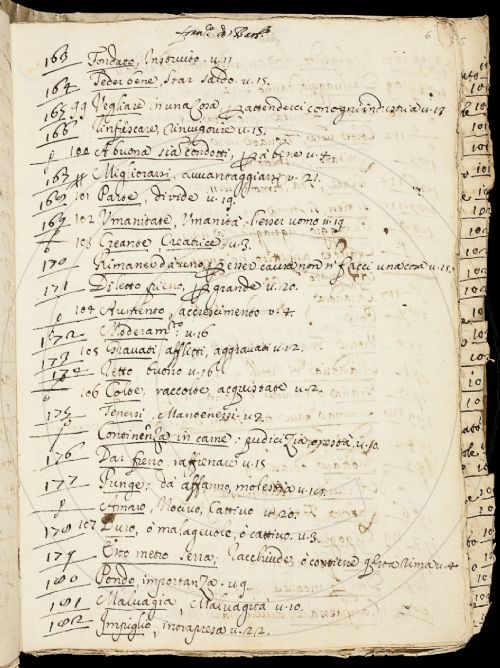 6
163 Fondate, Instruito. u.11
164 Seder bene, Star saldo. u.15.
165 99 Vegliare in una Cosa, attenderci con ogni industria u.17
166 Rinfrescare, Rinvigorire u.15.
100 A buona sia condotti, a bene u.4.
167 Migliorarsi, avvantaggiarsi u.21.
168 101 Parte, divide u.19.
169 102 Vmanitate, Vmanità, l'esser uomo u.19
103 Creante Creatrice u.3.
170 Rimaner non si facci una cosa u.15.
171 Diletto pieno, grande u.20.
104 Aumento, accrescimento u.4.
172 Moderam.to u.16
173 105 Gravati, afflitti, aggravati u.12.
174 Retto, buono u.16
106 Colte, raccolte, acquistate u.2.
175 Tenersi, Mantenersi u.9.
Continenza in carne, pudicizia, onestà u.10.
176 Dar freno, raffrenare u.15
177 Punge, dà affanno, molestia
Amaro, Nocivo, Cattivo u.20.
178 107 Duro, ò malagevole, ò cattivo. u.3.
179 Esto metro serra, Racchiude, ò contiene rima u.4
180 Pondo, importanza. u.9.
181 Malvagia, Malvagità u.10.
182 Impiglio, intrapresa u.22.